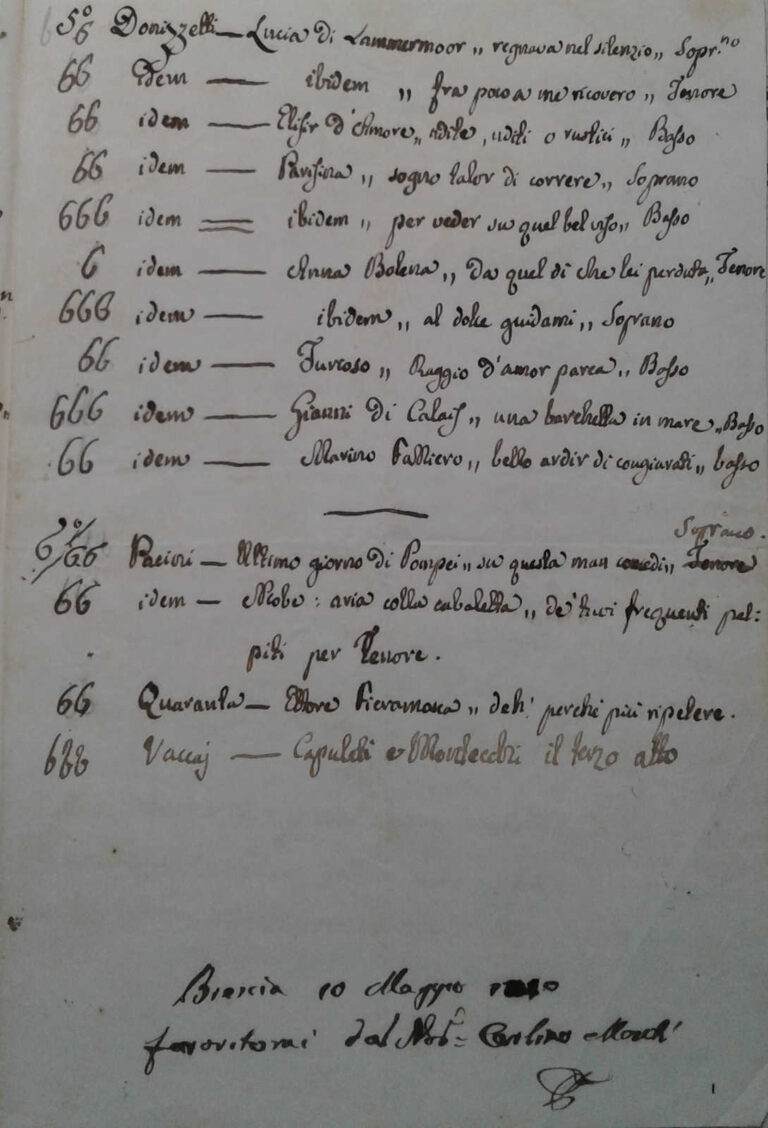 5° 6 Donizzetti — Lucia di Lammermoor „ regnava nel silenzio „ Sopr.no
66 idem — ibidem „ fra poco a me ricovero „ Tenore
66 idem — Elisir d'Amore „ udite, uditi o rustici „ Basso
66 idem — Parisina „ sogno talor di correre „ Soprano
666 idem = ibidem „ per veder su quel bel viso „ Basso
6 idem — Anna Bolena „ da quel dì che lei perduta „ Tenore
666 idem — ibidem „ al dolce guidami „ Soprano
66 idem — Furioso „ Raggio d'amor parea „ Basso
666 idem — Gianni di Calais „ una barchetta in mare „ Basso
66 idem — Marino Falliero „ bello ardir di congiurati „ basso
Soprano.
66 Pacini — Ultimo giorno di Pompei „ su questa man concedi „ Tenore
66 idem — Niobe : aria colla cabaletta „ de' tuoi frequenti pal:
piti per Tenore.
66 Quaranta — Ettore Fieramosca „ deh! perchè più ripetere.
666 Vaccaj — Capuleti e Montecchi il terzo atto
Brescia 10 Maggio
favoritomi dal Nob.e Carlino